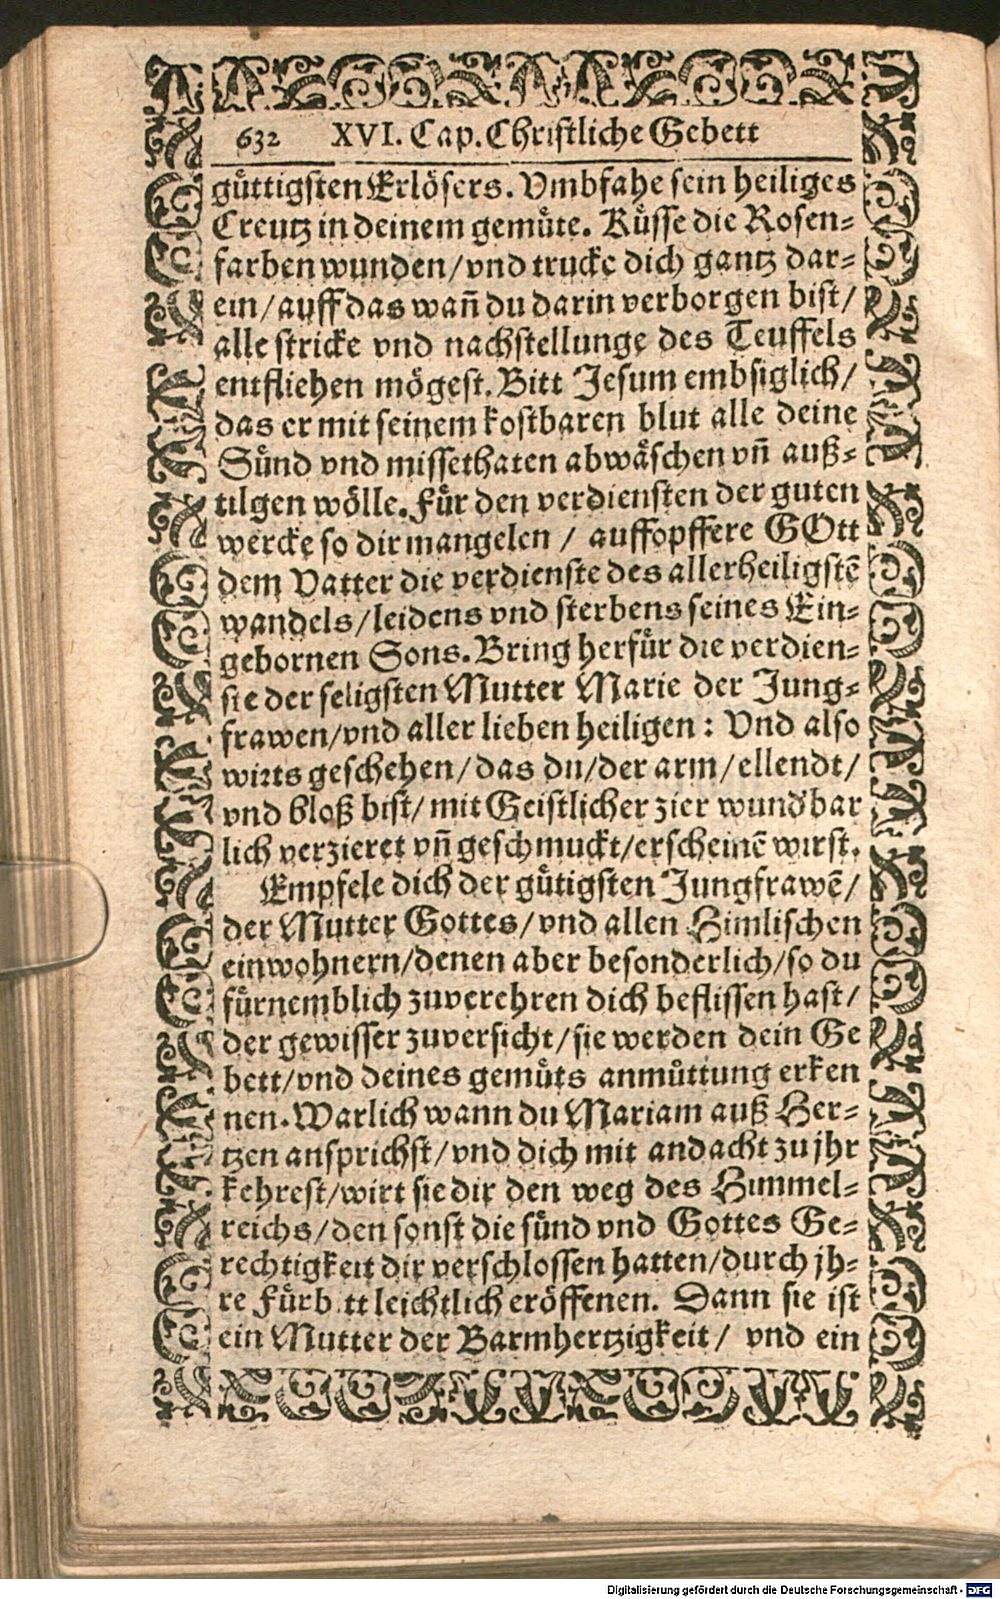 632 XVI. Cap. Christliche Gebett
güttigsten Erlösers. Vmbfahe sein heiliges
Creutz in deinem gemüte. Küsse die Rosen-
farben wunden/vnd trucke dich gantz dar-
ein/auff das wañ du darin verborgen bist/
alle stricke vnd nachstellunge des Teuffels
entfliehen mögest. Bitt Jesum embsiglich/
das er mit seinem kostbaren blut alle deine
Sünd vnd missethaten abwäschen vñ auß-
tilgen wölle. Für den verdiensten der guten
wercke so dir mangelen / auffopffere GOtt
dem Vatter die verdienste des allerheiligstẽ
wandels/leidens vnd sterbens seines Ein-
gebornen Sons. Bring herfür die verdien-
ste der seligsten Mutter Marie der Jung-
frawen/vnd aller lieben heiligen: Vnd also
wirts geschehen/das du/der arm/ellendt/
vnd bloß bist/ mit Geistlicher zier wund'bar
lich verzieret vñ geschmuckt/erscheinẽ wirst.
Empfele dich der gütigsten Jungfrawẽ/
der Mutter Gottes/vnd allen Himlischen
einwohnern/denen aber besonderlich/so du
fürnemblich zuverehren dich beflissen hast/
der gewisser zuversicht/sie werden dein Ge
bett/vnd deines gemüts anmüttung erken
nen. Warlich wann du Mariam auß Her-
tzen ansprichst/vnd dich mit andacht zu jhr
kehrest/wirt sie dir den weg des Himmel-
reichs/den sonst die sünd vnd Gottes Ge-
rechtigkeit dir verschlossen hatten/durch jh-
re Fürb tt leichtlich eröffenen. Dann sie ist
ein Mutter der Barmhertzigkeit/ vnd ein
Digitalisierung gefördert durch die Deutsche Forschungsgemeinschaft - DFG